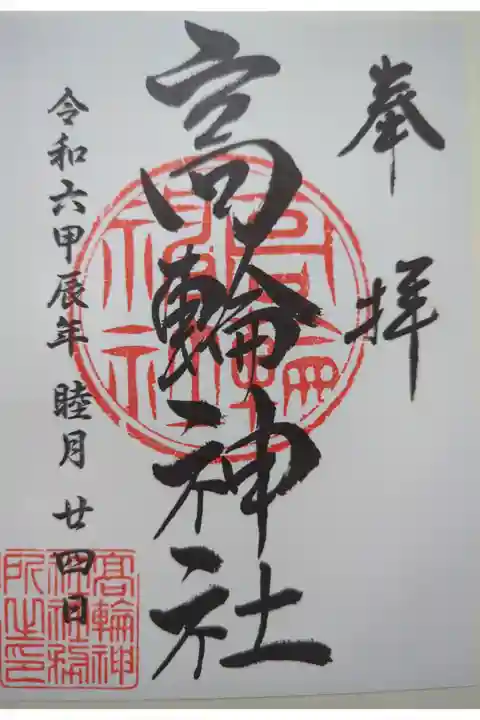 奉拝
高輪神社
令和六甲辰年 睦月 廿四日
高輪神社
髙輪神社務所之印